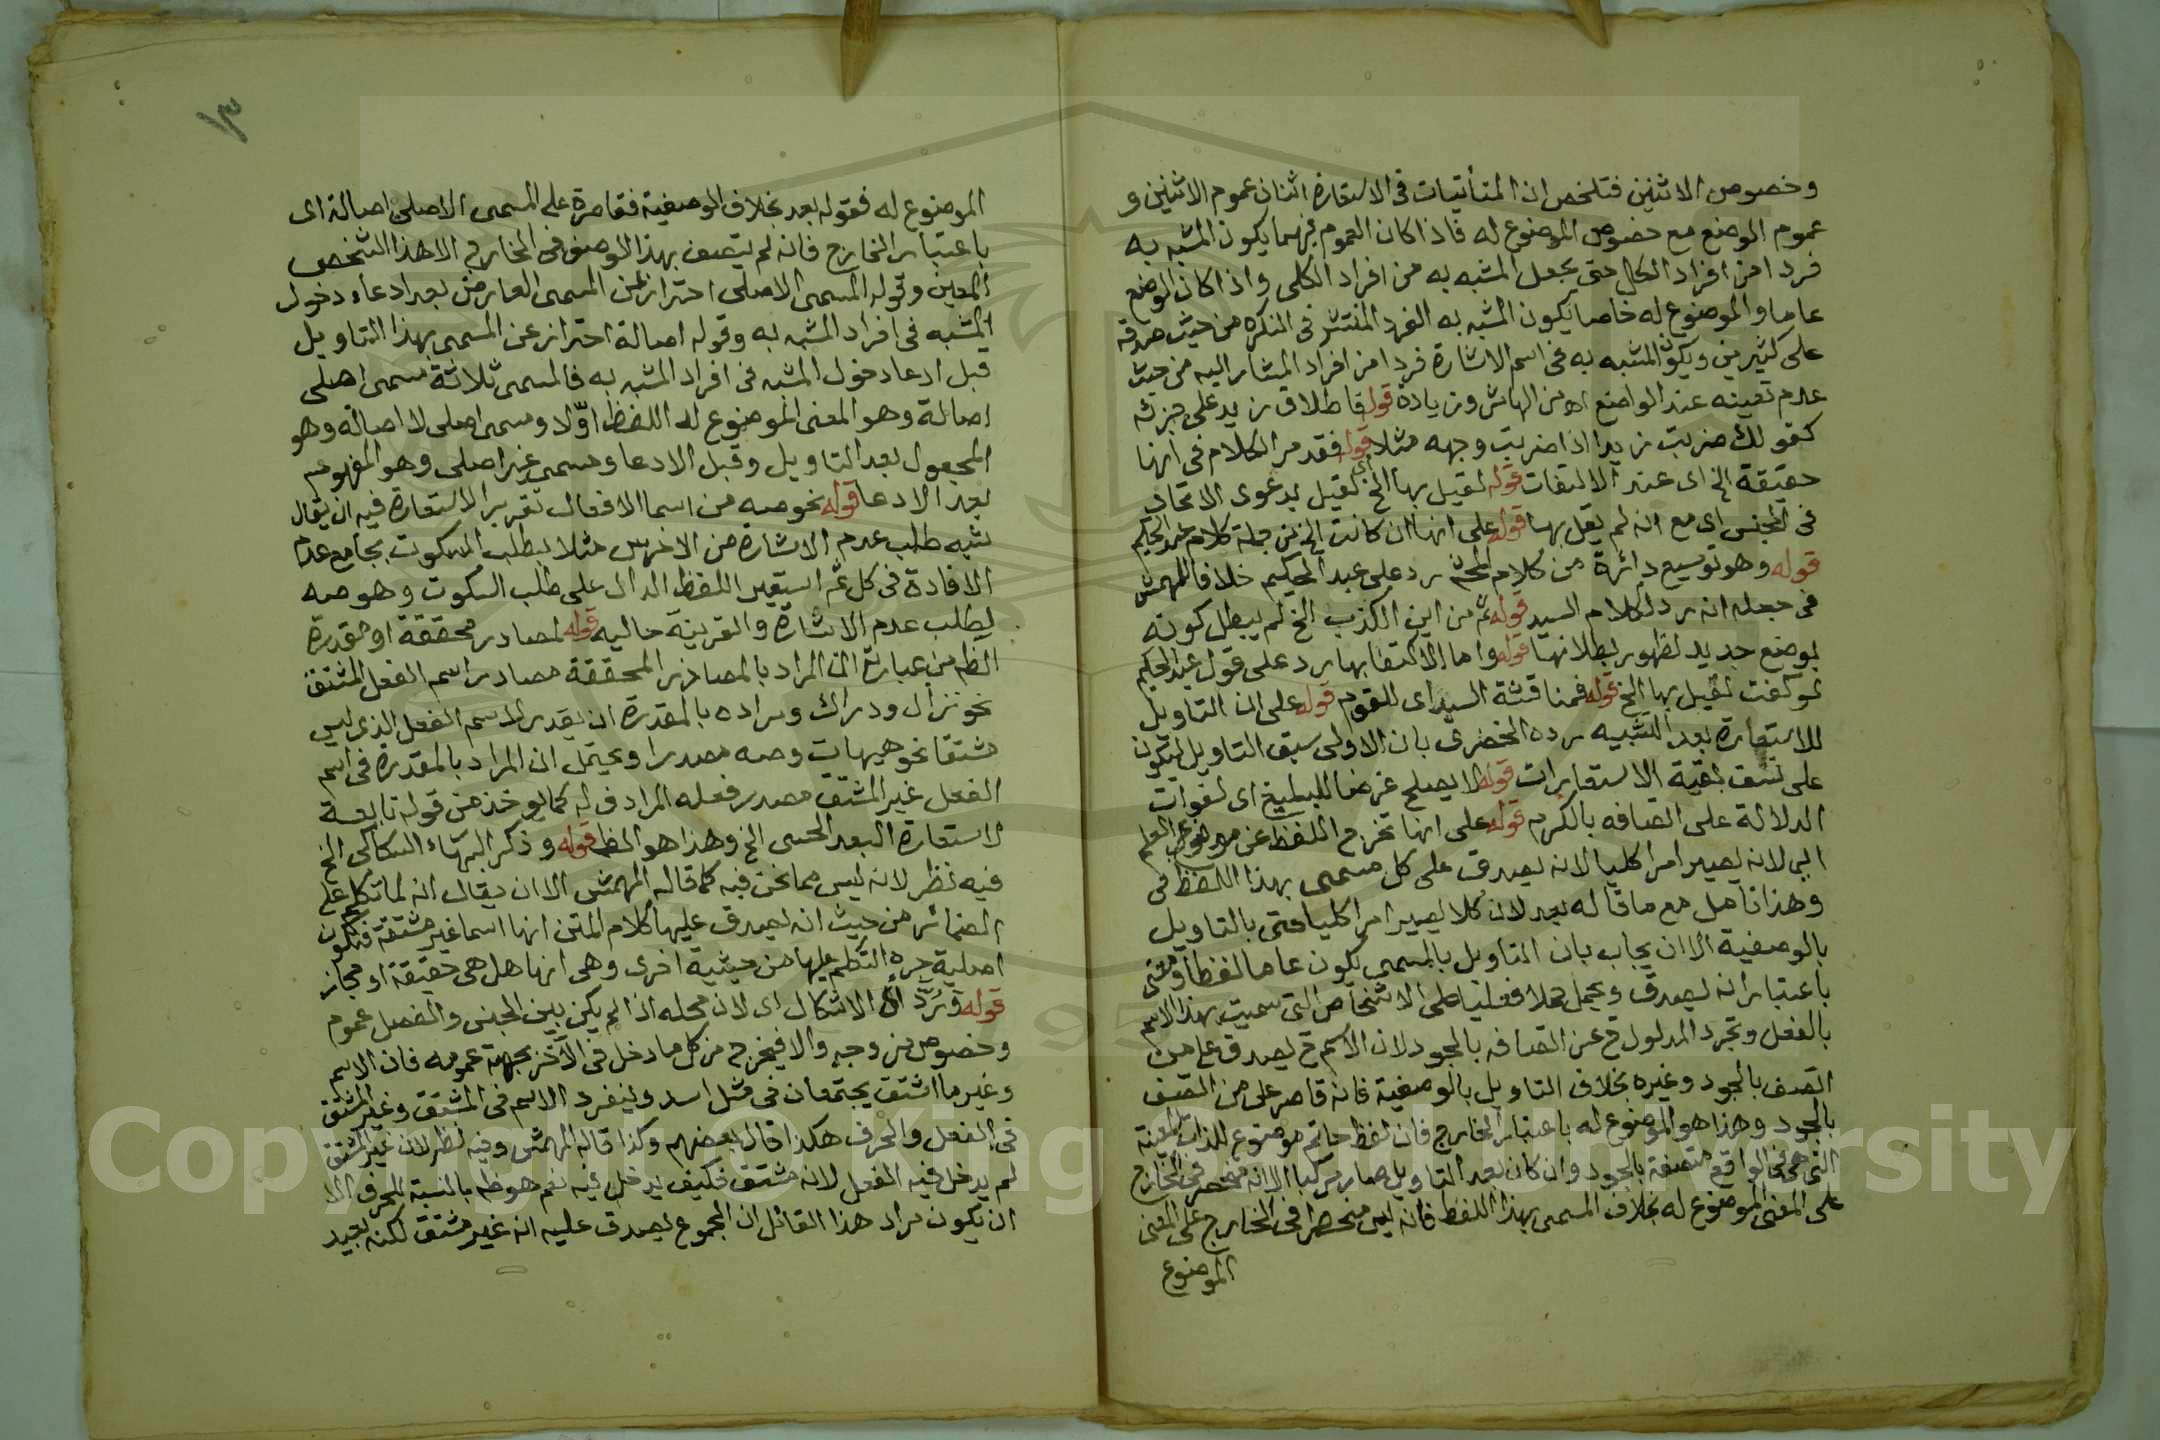 وخصوص الاثنين فتلخص ان المتأتيات فى الاستعارة اثنان عموم الاثنين و
عموم الوضع مع خصوص الموضوع له فاذا كان العموم فيهما يكون المشبه به
فردا من افراد الكلى حتى يجعل المشبه به من افراد الكلى واذا كان الوضع
عاما والموضوع له خاصا يكون المشبه به الفرد المنتشر فى النكرة من حيث صدقه
على كثيرين ويكون المشبه به فى اسم الاشارة فردا من افراد المشار اليه من حيث
عدم تعينه عند الواضع اه من الهامش وزيادة قوله فاطلاق زيد على جزئه
كقولك ضربت زيدا اذا ضربت وجهه مثلا قوله فقد مر الكلام فى انها
حقيقة الخ اى عند الالتفات قوله لقيل بها الخ اى لقيل بدعوى الاتحاد
فى الجنس اى مع انه لم يقل بها قوله على انها ان كانت الخ من جملة كلام عبد الحكيم
قوله وهو توسيع دائرة من كلام المحشى رد على عبد الحكيم خلافا للمهمش
فى جعله انه رد لكلام السيد قوله ثم من اين الكذب الخ لم يبطل كونه
بوضع جديد لظهور بطلانها قوله واما الاكتفا بها رد على قول عبد الحكيم
لو كفت لقيل بها الخ قوله فمناقشة السيد اى للقوم قوله على ان التاويل
للاستعارة بعد التشبيه رده الخضرى بان الاولى سبق التاويل لتكون
على نسق بقية الاستعارات قوله لا يصلح غرضا للبليغ اى لفوات
الدلالة على اتصافه بالكرم قوله على انها تخرج اللفظ عن موضوع العلم
اى لانه يصير امرا كليا لانه يصدق على كل مسمى بهذا اللفظ فى
وهذا تامل مع ما قاله بعد لان كلا يصير امرا كليا حتى بالتاويل
بالوصفية الا ان يجاب بان التاويل بالمسمى يكون عاما لفظا ومعنى
باعتبار انه يصدق ويحمل حملا فعليا على الاشخاص التى سميت بهذا الاسم
بالفعل وتجرد المدلول ح عن اتصافه بالجود لان الاسم ح يصدق على من
اتصف بالجود وغيره بخلاف التاويل بالوصفية فانه قاصر على من اتصف
بالجود وهذا هو الموضوع له باعتبار الخارج فان لفظ حاتم موضوع للذات المعينة
التى هى فى الواقع متصفة بالجود وان كان بعد التاويل صار مركبا الا انه منحصر فى الخارج
على المعنى الموضوع له بخلاف المسمى بهذا اللفظ فانه ليس منحصرا فى الخارج على المعنى
الموضوع
١٣
الموضوع له فقوله بعد بخلاف الوصفية فقاصرة على المسمى الاصلى اصالة اى
باعتبار الخارج فانه لم يتصف بهذا الوصف فى الخارج الا هذا الشخص
المعين وقوله المسمى الاصلى احتراز عن المسمى العارض بعد ادعاء دخول
المشبه فى افراد المشبه به وقوله اصالة احتراز عن المسمى بهذا التاويل
قبل ادعا دخول المشبه فى افراد المشبه به فالمسمى ثلاثة مسمى اصلى
اصالة وهو المعنى الموضوع له اللفظ اوّلا ومسمى اصلى لا اصالة وهو
المجعول بعد التاويل وقبل الادعا ومسمى غير اصلى وهو المفهوم
بعد الادعا قوله نحو صه من اسما الافعال تقرير الاستعارة فيه ان يقال
شبه طلب عدم الاشارة من الاخرس مثلا بطلب السكوت بجامع عدم
الافادة فى كل ثم استعير اللفظ الدال على طلب السكوت وهو صه
لطلب عدم الاشارة والقرينة حاليه قوله لمصادر محققة او مقدرة
الظ من عبارته ان المراد بالمصادر المحققة مصادر اسم الفعل المشتق
نحو نزال ودراك ومراده بالمقدرة ان يقدر لاسم الفعل الذى ليس
مشتقا نحو هيهات وصه مصدرا ويحتمل ان المراد بالمقدرة فى اسم
الفعل غير المشتق مصدر فعله المرادف له كما يوخذ من قوله تابعة
لاستعارة البعد الحسى الخ وهذا هو الظ قوله وذكر البهاء السبكى الخ
فيه نظر لانه ليس مما نحن فيه كما قاله المهمش الا ان يقال انه لما تكلم على
الضمائر من حيث انه يصدق عليها كلام المتن انها اسما غير مشتقة فتكون
اصلية جره التكلم عليها من حيثية اخرى وهى انها هل هى حقيقة او مجاز
قوله فرُدّ الاشكال اى لان محله اذا لم يكن بين الجنس والفصل عموم
وخصوص من وجه والا فيخرج من كل ما دخل فى الآخر بجهة عمومه فان الاسم
وغير ما اشتق يجتمعان فى مثل اسد وينفرد الاسم فى المشتق وغير المشتق
فى الفعل والحرف هكذا قال بعضهم وكذا قاله المهمش وفيه نظر لان غير المشتق
لم يدخل فيه الفعل لانه مشتق فكيف يدخل فيه نعم هو ظه بالنسبة للحرف الا
ان يكون مراد هذا القائل ان المجموع يصدق عليه انه غير مشتق لكنه بعيد
Copyright © King Saud University